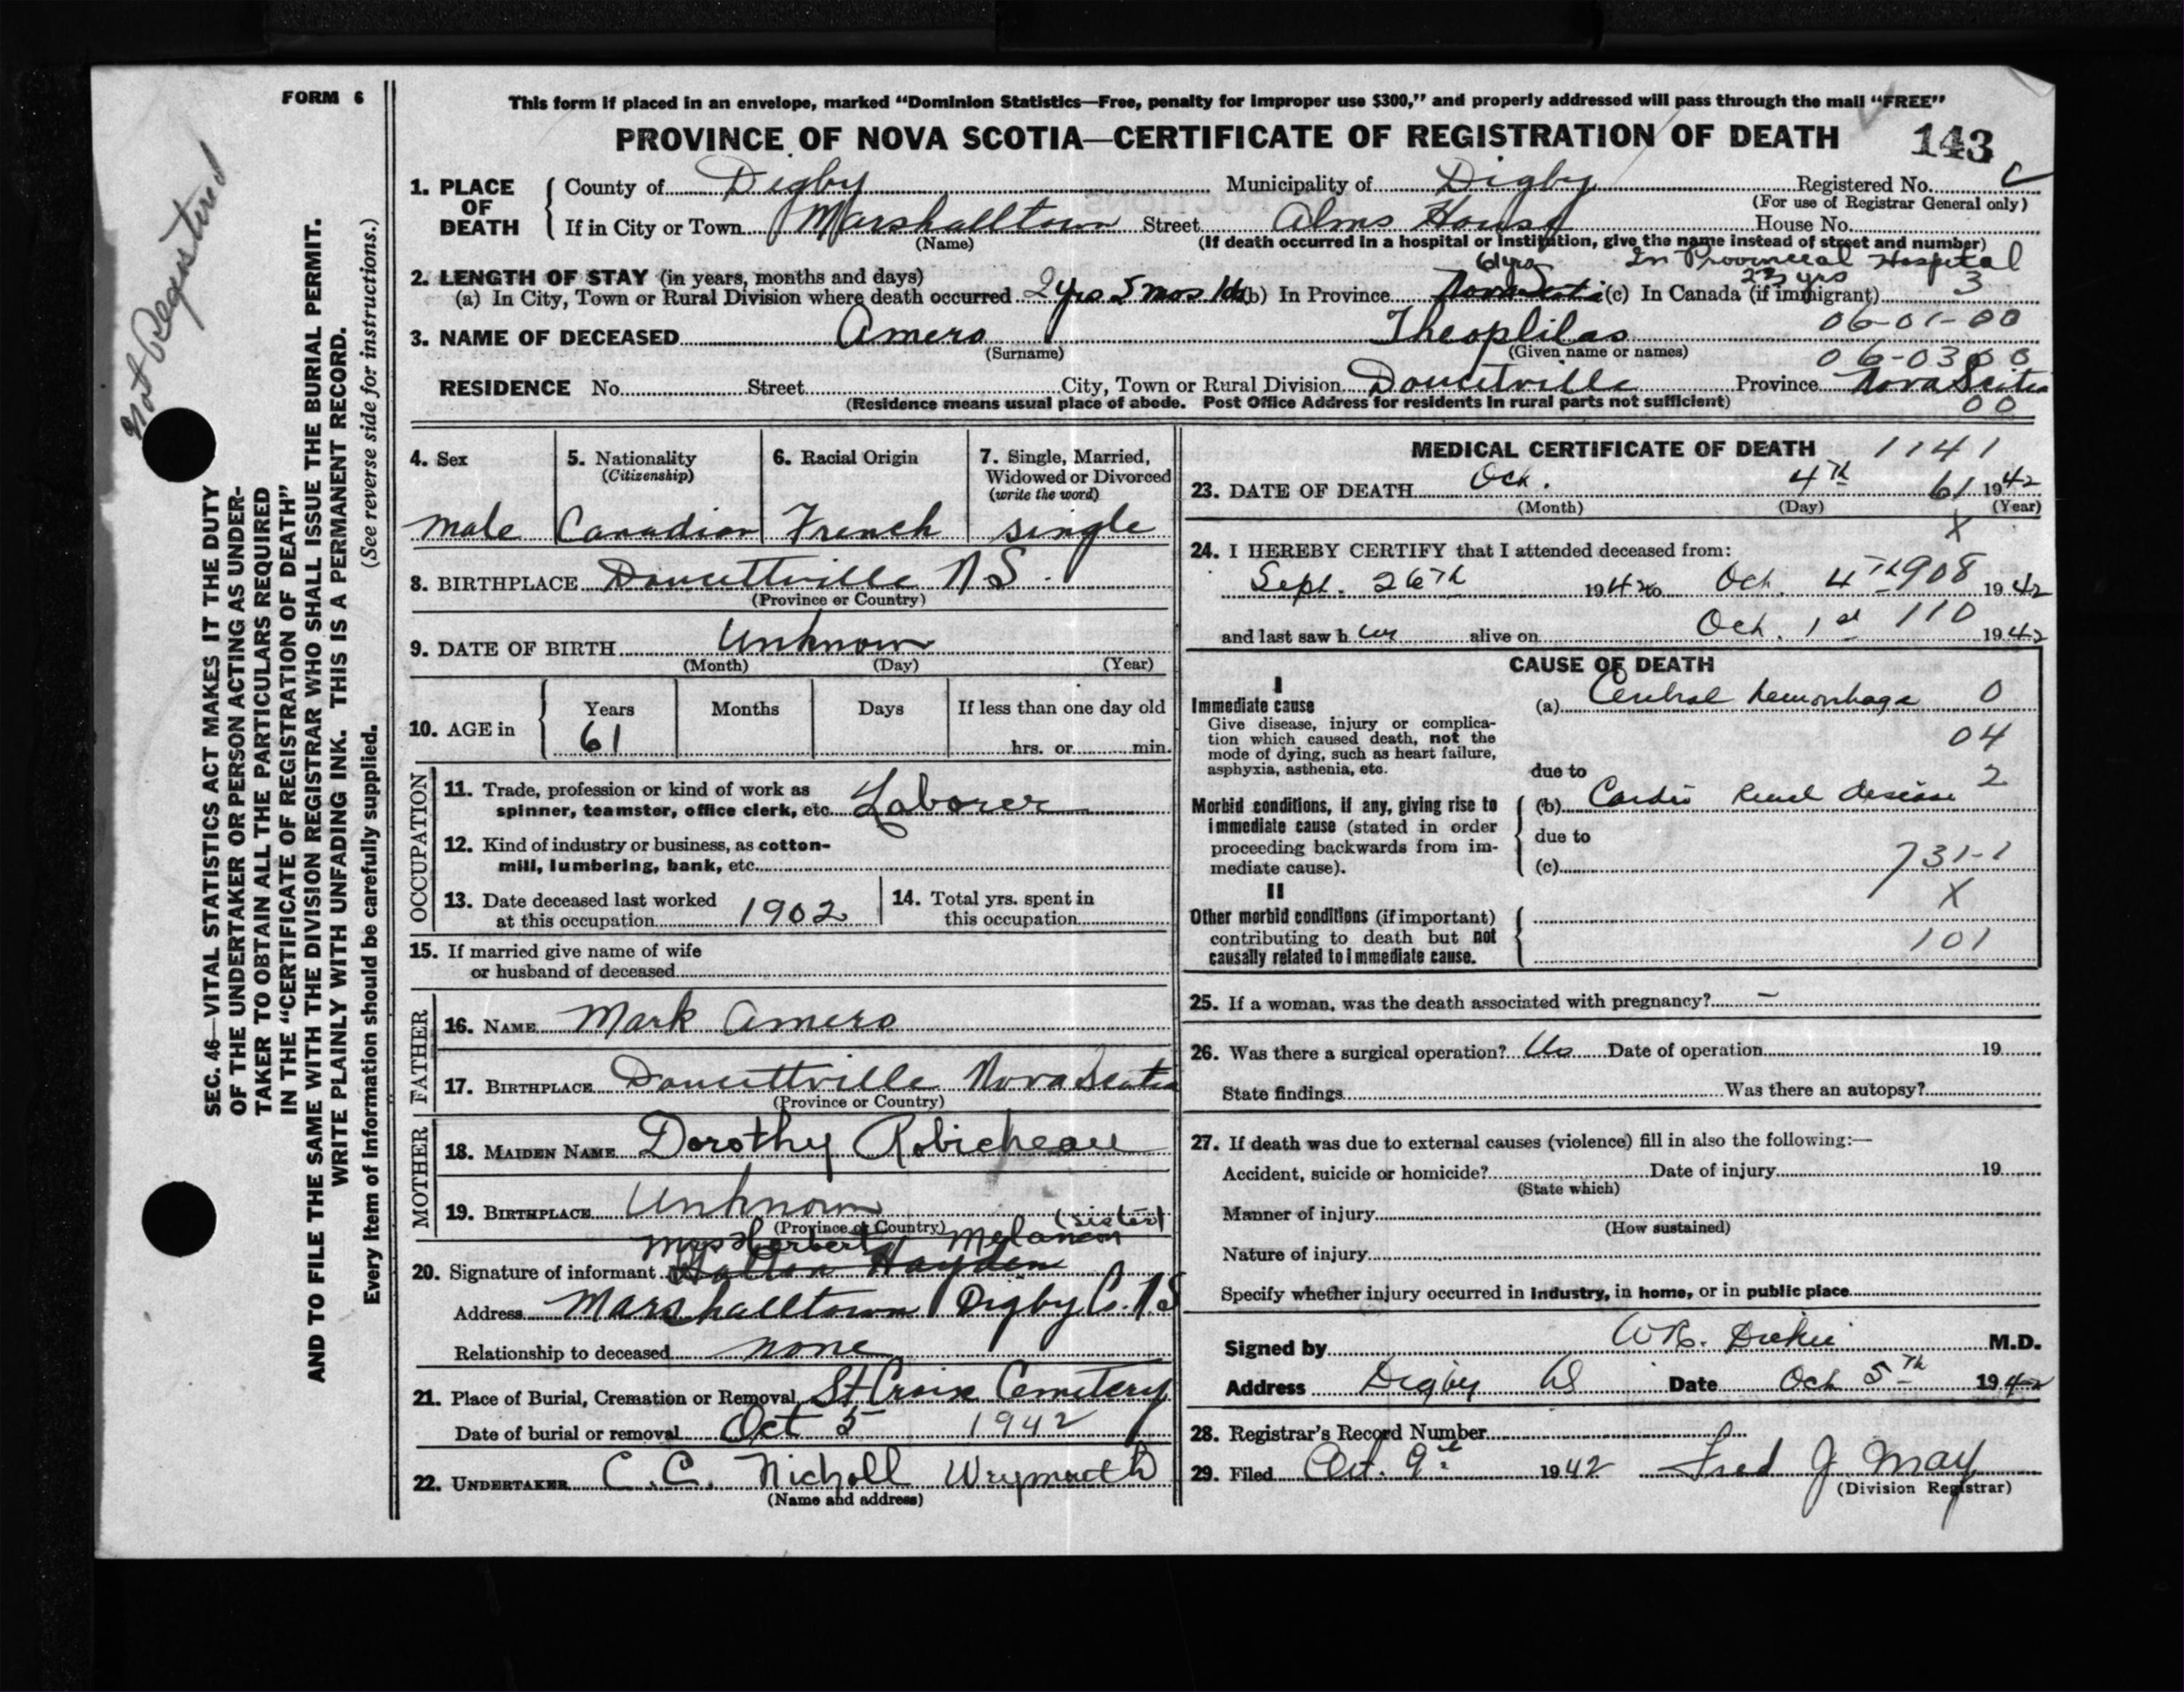 FORM 6
Not Registered
SEC. 46—VITAL STATISTICS ACT MAKES IT THE DUTY
OF THE UNDERTAKER OR PERSON ACTING AS UNDER-
TAKER TO OBTAIN ALL THE PARTICULARS REQUIRED
IN THE "CERTIFICATE OF REGISTRATION OF DEATH"
AND TO FILE THE SAME WITH THE DIVISION REGISTRAR WHO SHALL ISSUE THE BURIAL PERMIT.
WRITE PLAINLY WITH UNFADING INK. THIS IS A PERMANENT RECORD.
Every item of information should be carefully supplied. (See reverse side for instructions.)
This form if placed in an envelope, marked "Dominion Statistics—Free, penalty for improper use $300," and properly addressed will pass through the mail "FREE"
PROVINCE OF NOVA SCOTIA—CERTIFICATE OF REGISTRATION OF DEATH 143
1. PLACE OF DEATH County of Digby Municipality of Digby Registered No. C
(For use of Registrar General only)
If in City or Town Marshalltown Street Alms House House No.
(Name) (If death occurred in a hospital or institution, give the name instead of street and number)
2. LENGTH OF STAY (in years, months and days) 61 yrs In Provincial Hospital 23 yrs
(a) In City, Town or Rural Division where death occurred 2 yrs 5 mos 1 ds (b) In Province Nova Scotia (c) In Canada (if immigrant) 3
06-01-00
3. NAME OF DECEASED Amero Theoplilas
(Surname) (Given name or names) 06-03 00
RESIDENCE No. Street City, Town or Rural Division Doucetville Province Nova Scotia
(Residence means usual place of abode. Post Office Address for residents in rural parts not sufficient) 00
4. Sex 5. Nationality (Citizenship) 6. Racial Origin 7. Single, Married, Widowed or Divorced (write the word)
male Canadian French single
8. BIRTHPLACE Doucettville N S
(Province or Country)
9. DATE OF BIRTH Unknown
(Month) (Day) (Year)
10. AGE in Years Months Days If less than one day old
61 hrs. or min.
OCCUPATION
11. Trade, profession or kind of work as
spinner, teamster, office clerk, etc. Laborer
12. Kind of industry or business, as cotton-
mill, lumbering, bank, etc.
13. Date deceased last worked
at this occupation 1902
14. Total yrs. spent in
this occupation
15. If married give name of wife
or husband of deceased
FATHER
16. NAME Mark Amero
17. BIRTHPLACE Doucettville Nova Scotia
(Province or Country)
MOTHER
18. MAIDEN NAME Dorothy Robicheau
19. BIRTHPLACE Unknown
(Province or Country) (sister)
Mrs Herbert Melanson
20. Signature of informant Hayden
Address Marshalltown Digby Co. N.S
Relationship to deceased none
21. Place of Burial, Cremation or Removal St Croix Cemetery
Date of burial or removal Oct 5 1942
22. UNDERTAKER C. C. Nicholl Weymouth
(Name and address)
MEDICAL CERTIFICATE OF DEATH 1141
23. DATE OF DEATH Oct. 4th 61 1942
(Month) (Day) (Year)
X
24. I HEREBY CERTIFY that I attended deceased from:
Sept. 26th 1942 to Oct. 4th 908 1942
and last saw h alive on Oct. 1st 110 1942
CAUSE OF DEATH
I
Immediate cause
Give disease, injury or complica-
tion which caused death, not the
mode of dying, such as heart failure,
asphyxia, asthenia, etc.
(a) Cerebral hemorrhage 0
04
due to
Morbid conditions, if any, giving rise to
immediate cause (stated in order
proceeding backwards from im-
mediate cause).
(b) Cardio Renal disease 2
due to
(c) 731-1
X
II
Other morbid conditions (if important)
contributing to death but not
causally related to immediate cause.
101
25. If a woman, was the death associated with pregnancy? —
26. Was there a surgical operation? No Date of operation 19
State findings Was there an autopsy?
27. If death was due to external causes (violence) fill in also the following:—
Accident, suicide or homicide? Date of injury 19
(State which)
Manner of injury
(How sustained)
Nature of injury
Specify whether injury occurred in industry, in home, or in public place
Signed by W R. Dickie M.D.
Address Digby NS Date Oct 5th 1942
28. Registrar's Record Number
29. Filed Oct. 9th 1942 Fred J May
(Division Registrar)